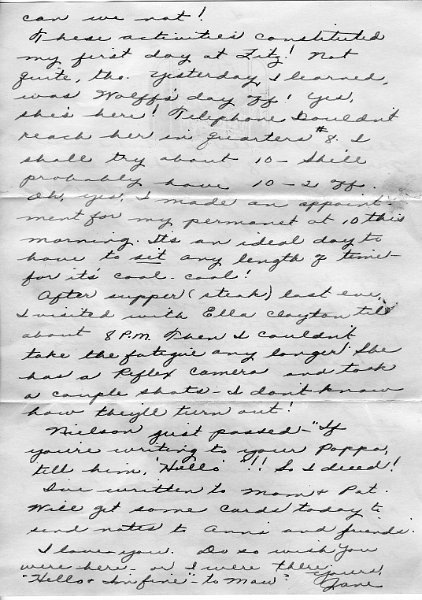 can we not!
These activities constituted
my first day at Fitz! Not
quite, tho. Yesterday, I learned,
was Wolff's day off! Yes,
she's here! Telephone I couldn't
reach her in quarters #8. I
shall try about 10 - She'll
probably have 10-2 off.
Oh, yes, I made an appoint-
ment for my permanet at 10 this
morning. It's an ideal day to
have to sit any length of time -
for it's cool - cool!
After supper (steak) last eve,
I visited with Ella Clayton till
about 8 P.M. Then I couldn't
take the fatigue any longer! She
has a Reflex Camera and took
a couple shots - I don't know
how they'll turn out!
Nielson just passed - "If
you're writing to your Poppa,
tell him, 'Hello'"!! So I deed!
I've written to Mom & Pat.
Will get some cards today to
send notes to Anna and friends.
I love you. Do so wish you
were here - or I were there.
"Hello + I'm fine" - to Maw. Yours,
Jane